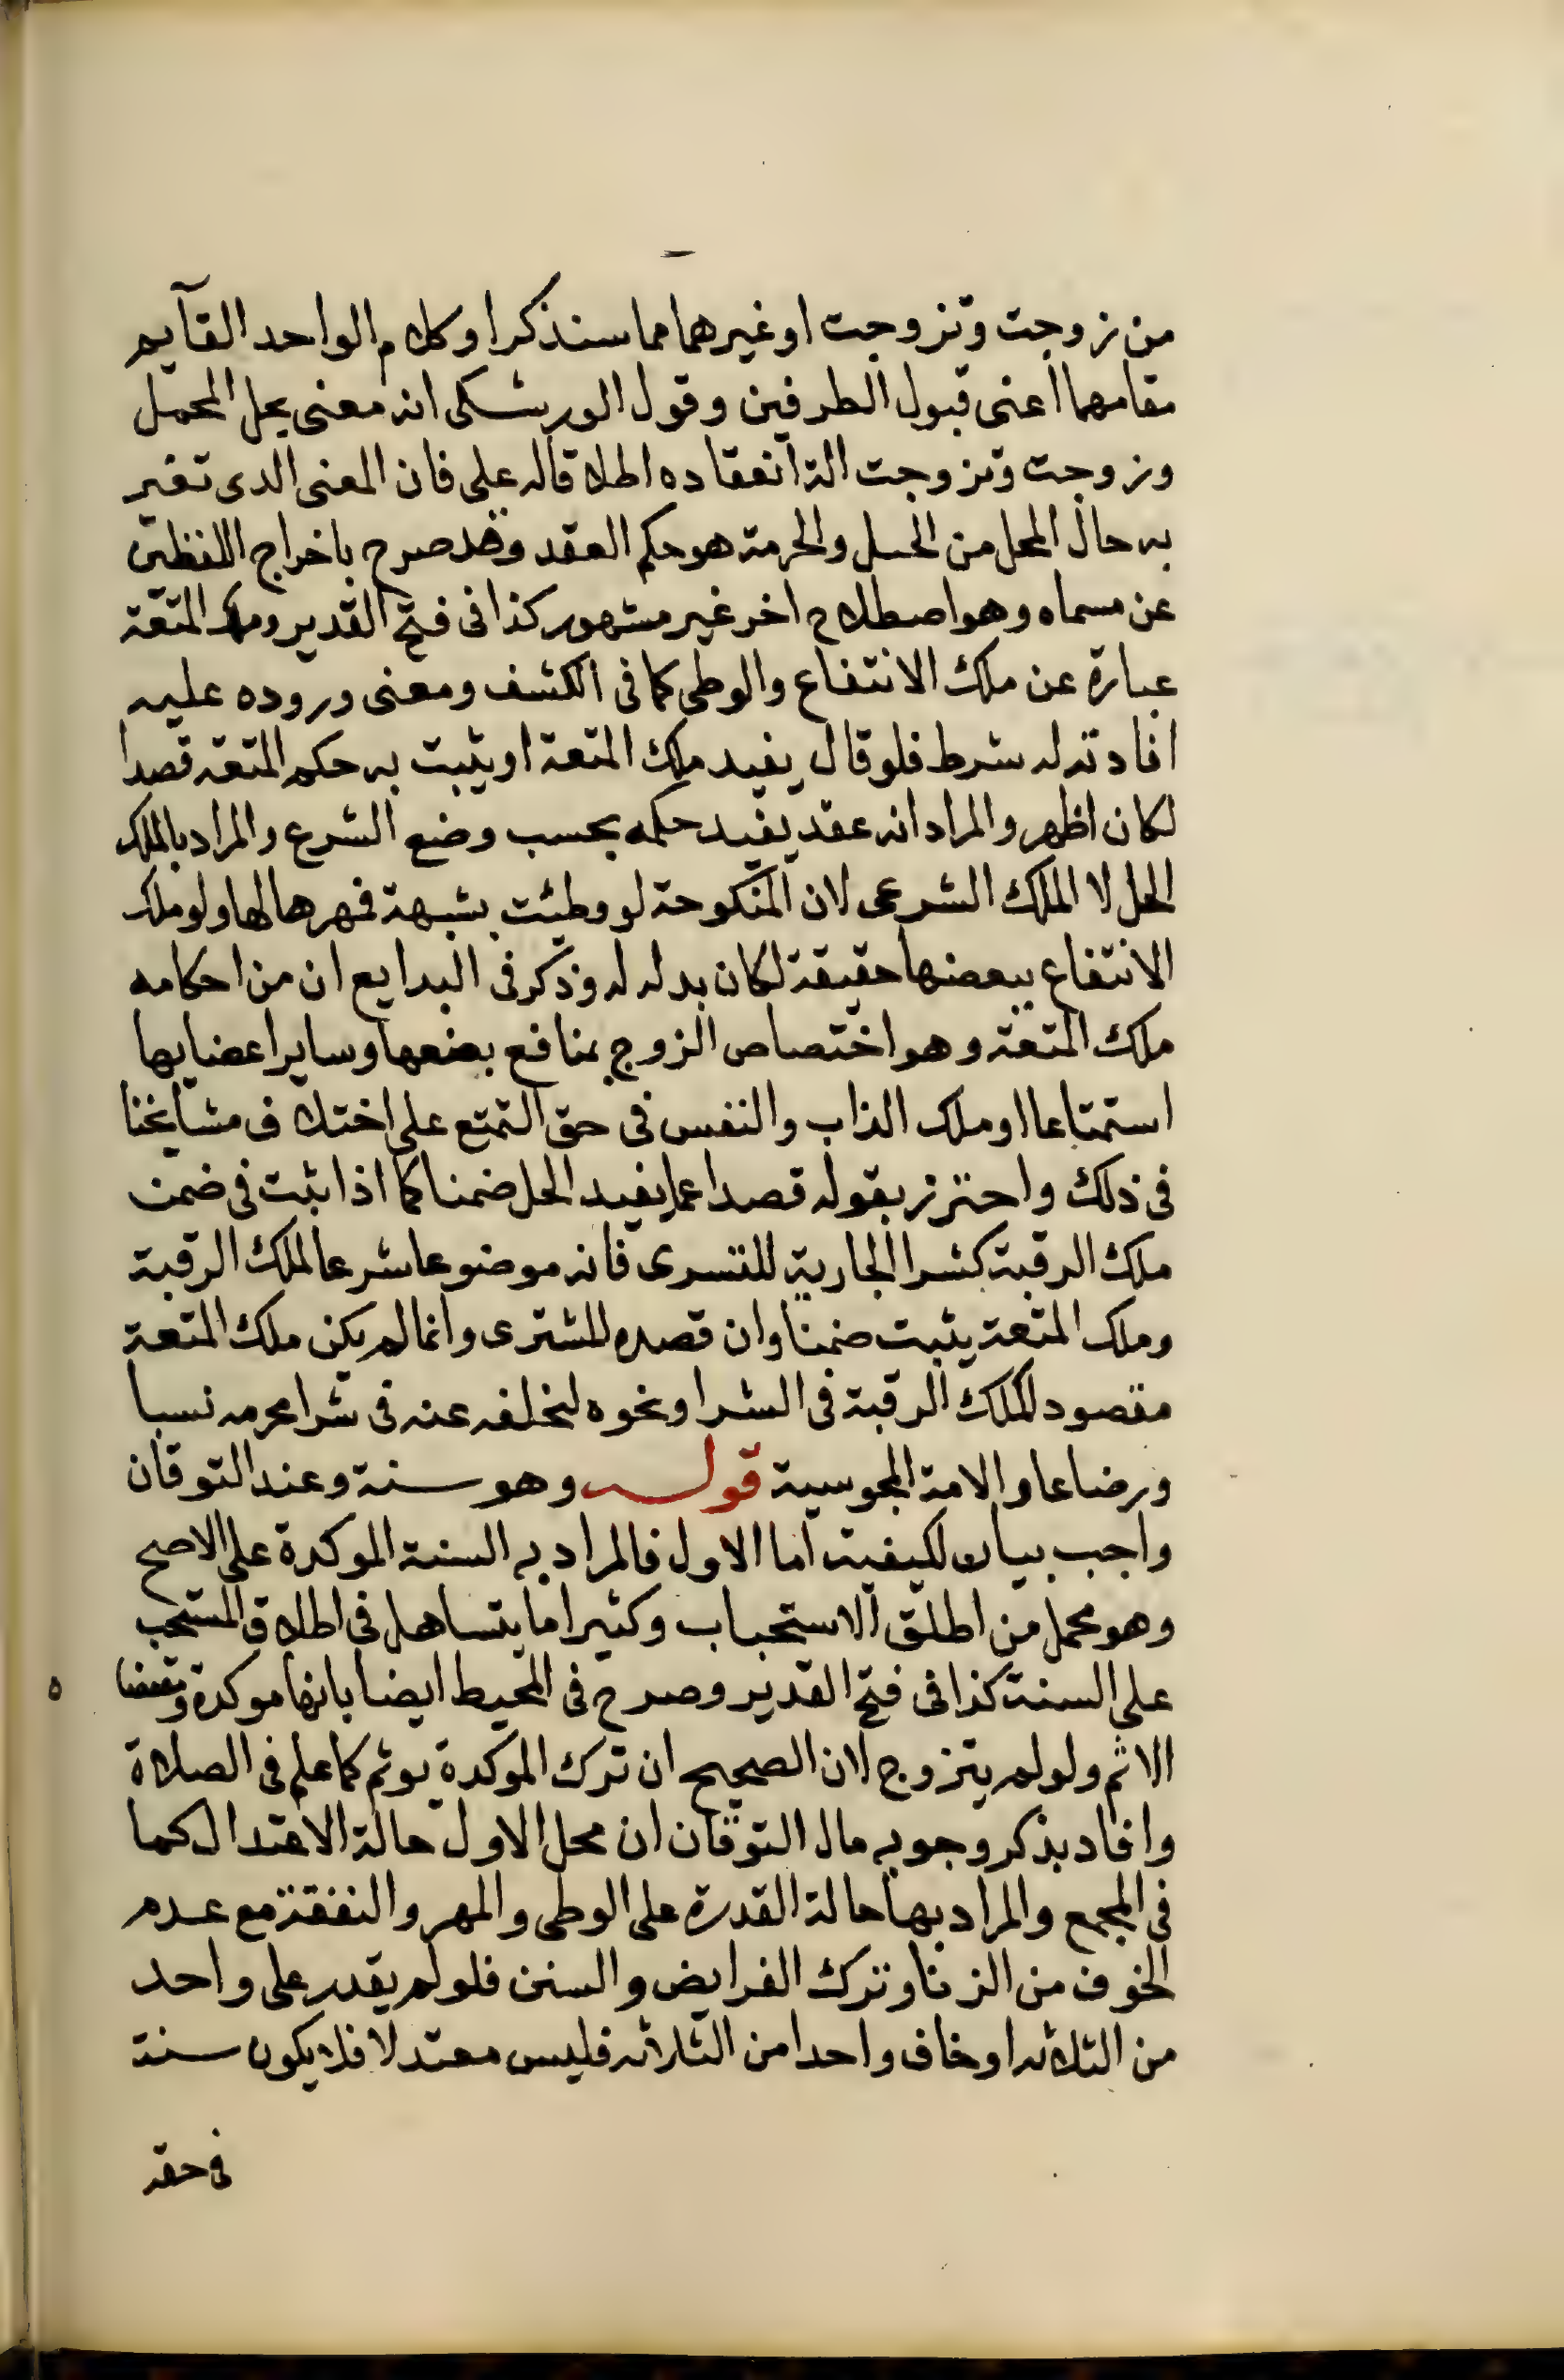 من زوجت وتزوجت او غيرهما مما سنذكر او كلام الواحد القآيم
مقامهما اعنى قبول الطرفين وقول الورشكى انه معنى يحل المحمل
وزوجت وتزوجت الة انعقاده اطلاقاله على فان المعنى الدى تغير
به حال المحل من الحل والحرمة هو حكم العقد وقد صرح باخراج اللفظين
عن مسماه وهو اصطلاح اخر غير مشهور كذا فى فتح القدير وملك المتعة
عبارة عن ملك الانتفاع والوطى كما فى الكشف ومعنى وروده عليه
افادته له شرط فلو قال يفيد ملك المتعة او يثبت به حكم المتعه قصدا
لكان اظهر والمراد انه عقد يفيد حكمه بحسب وضع الشرع والمراد بالملك
الحل لا الملك الشرعى لان المنكوحة لو وطيئت بشبهة فمهرها لها ولو ملك
الانتفاع ببعضها حقيقة لكان بدله له وذكر فى البدايع ان من احكامه
ملك المتعة وهو اختصاص الزوج بمنافع بضعها وساير اعضايها
استمتاعا او ملك الذاب والنفس فى حق التمتع على اختلاف مشايخنا
فى ذلك واحترز بقوله قصدا عما يفيد الحل ضمنا كما اذا ثبت فى ضمن
ملك الرقبة كشرا الجارية للتسرى فانه موضوعا شرعا لملك الرقبة
وملك المتعة يثبت ضمنا وان قصده المشترى وانما لم يكن ملك المتعة
مقصود لملك الرقبة فى الشرا ونحوه لتخلفه عنه فى شرا محرمه نسبا
ورضاعا والامة المجوسية قوله وهو سنة وعند التوقان
واجب بيان لكيفيته اما الاول فالمراد به السنة الموكدة على الاصح
وهو محمل من اطلق الاستحباب وكثيرا ما يتساهل فى اطلاق المستحب
على السنة كذا فى فتح القدير وصرح فى المحيط ايضا بانها موكدة ومقتضا
الاثم ولو لم يتزوج لان الصحيح ان ترك الموكدة يوثم كما علم فى الصلاة
وافاد بذكر وجوبه حال التوقان ان محل الاول حالة الاعتدال كما
فى المجمع والمراد بها حالة القدرة على الوطى والمهر والنفقة مع عدم
الخوف من الزنا وترك الفرايض والسنن فلو لم يقدر على واحد
من الثلاثه او خاف واحدا من الثلاثه فليس معتدلا فلا يكون سنة
فى حقه